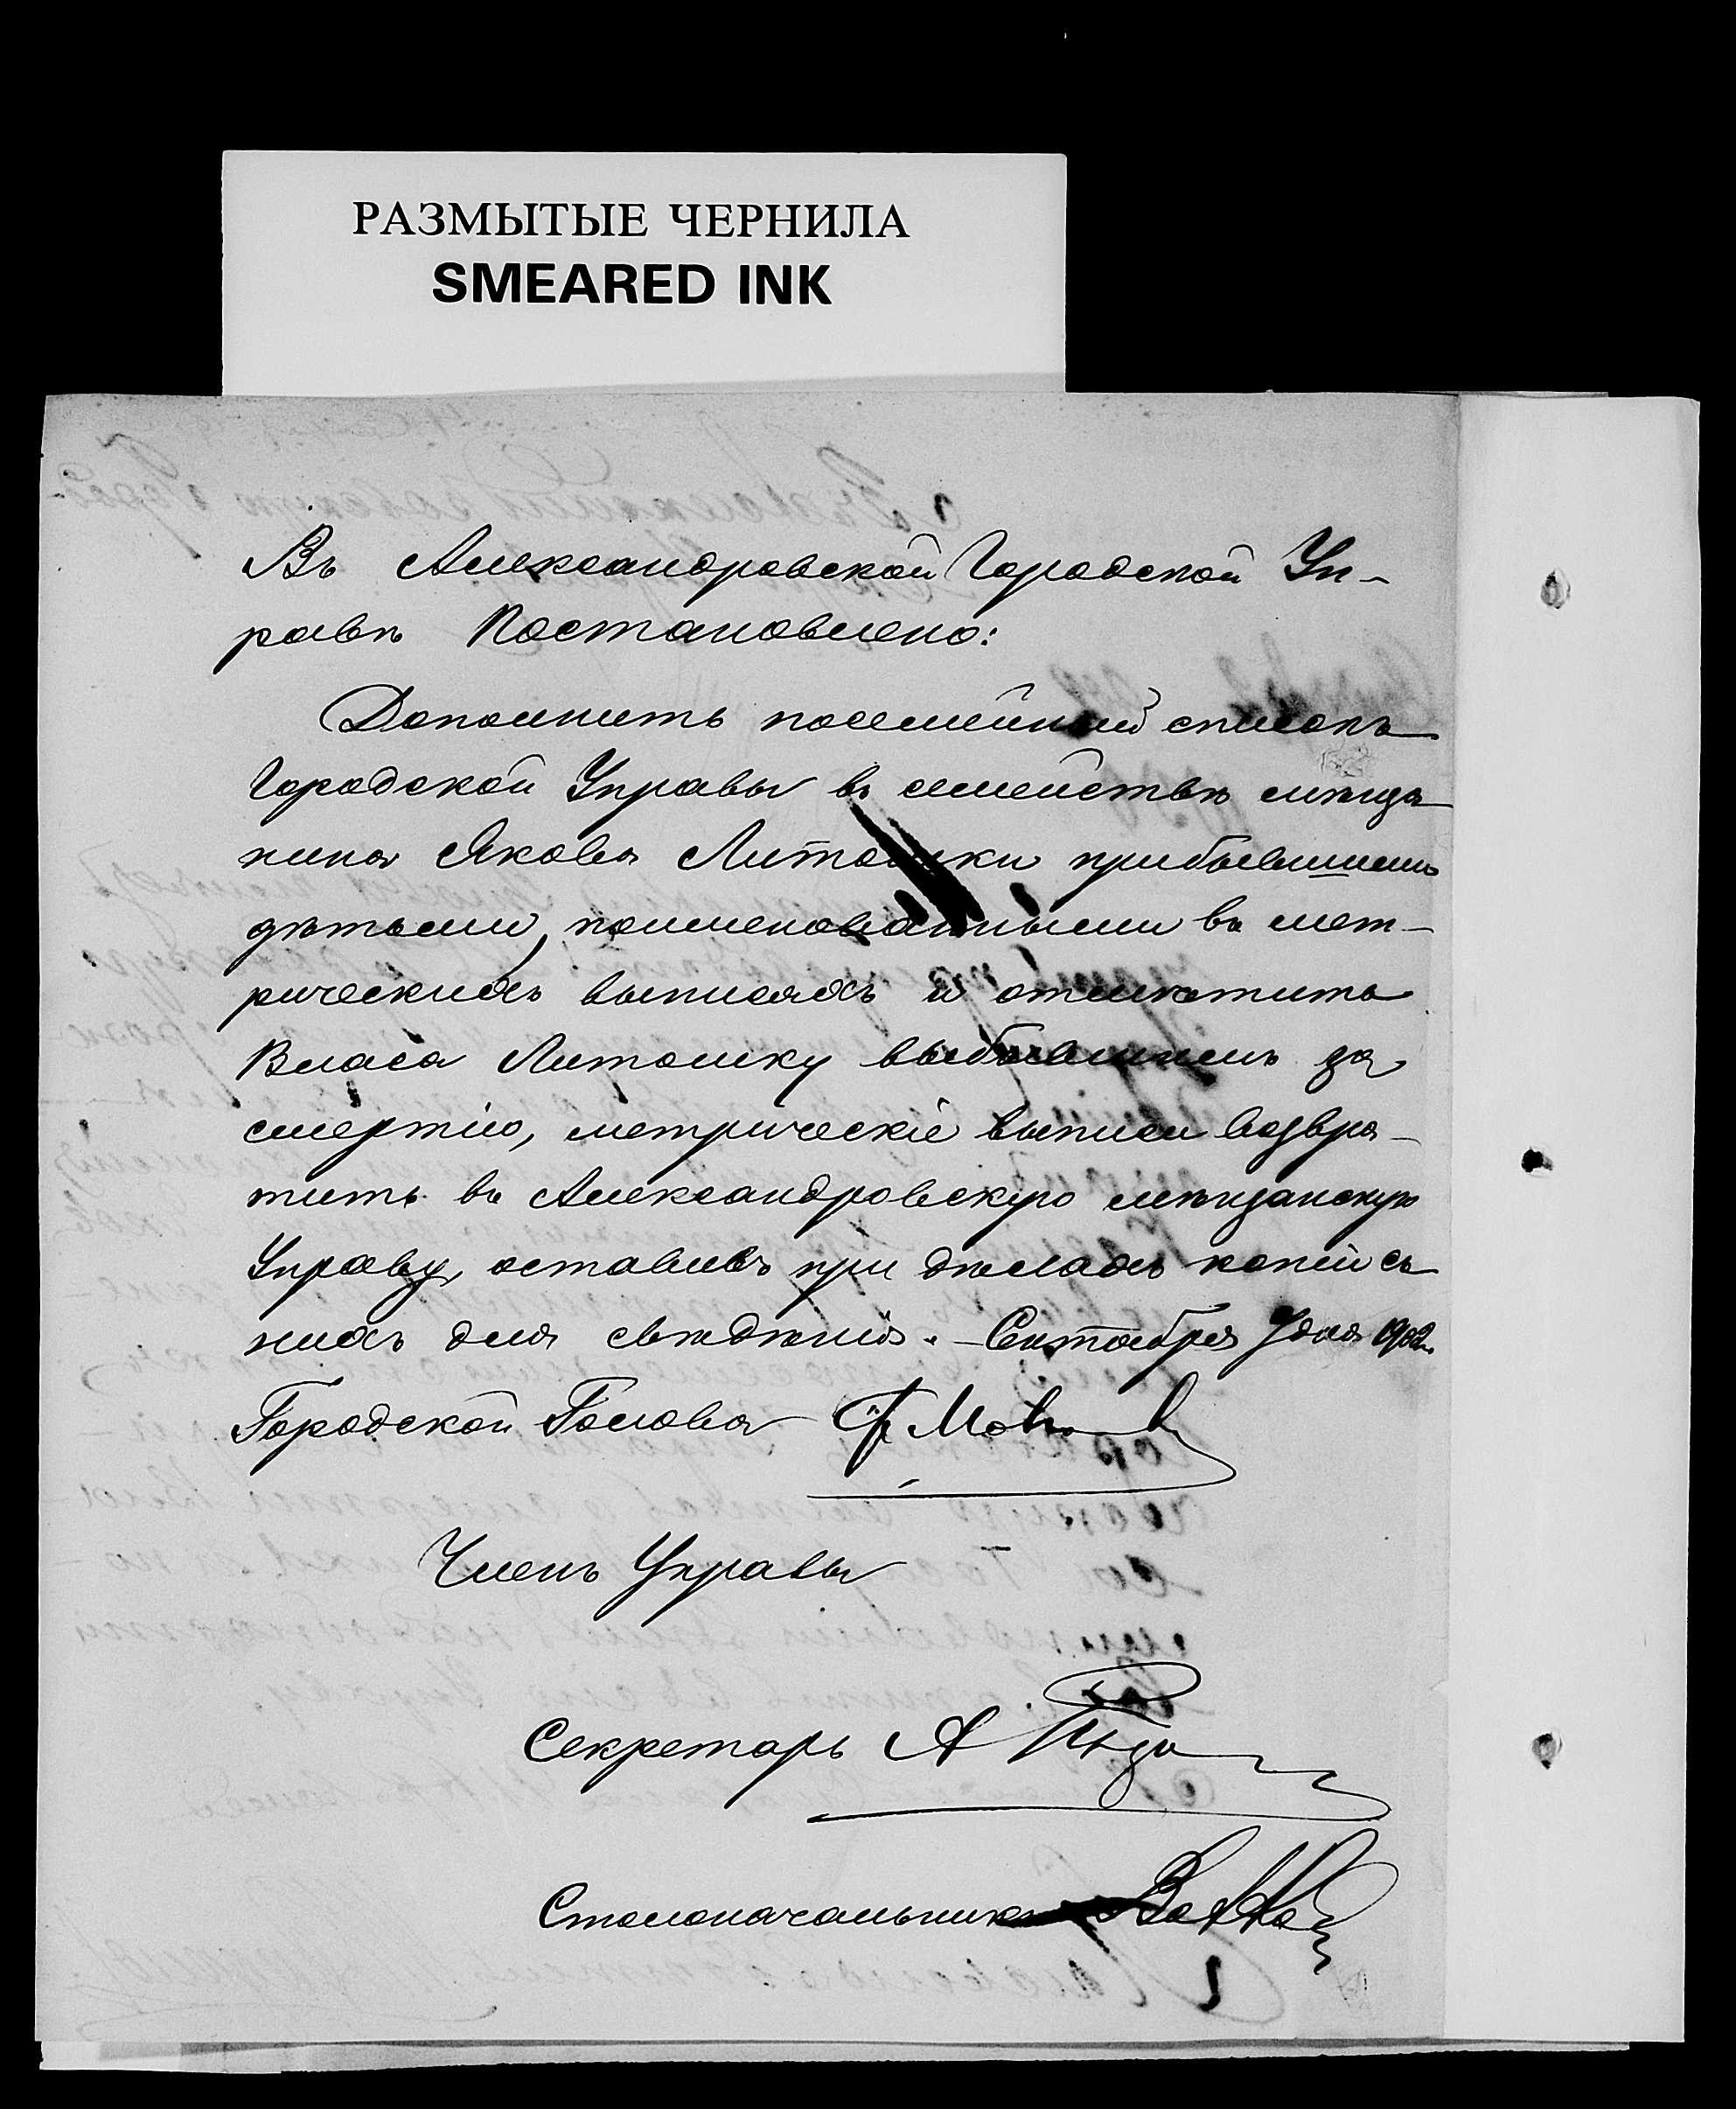 РАЗМЫТЫЕ ЧЕРНИЛА
SMEARED INK
Въ Александровской Городской Уп-
равѣ Постановлено:
Дополнить посемейный списокъ
Городской Управы въ семействѣ мѣща
нина Якова Литошки прибывшими
дѣтьми, поименованными въ мет-
рическихъ выписяхъ и отмѣтить
Власа Литошку выбывшимъ за
смертію, метрическіе выписи возвра-
тить въ Александровскую мѣщанскую
Управу, оставивъ при дѣлахъ копіи съ
нихъ для свѣдѣнія. Сентября 7 дня 1902г.
Городской Голова Ф
Членъ Управы
Секретарь А
Столоначальникъ